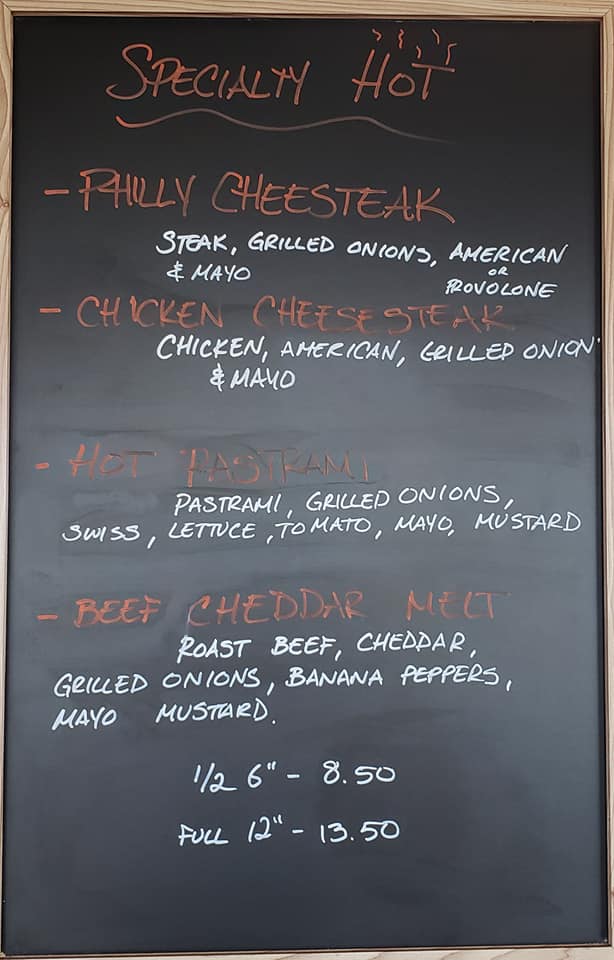 SPECIALTY HOT
- PHILLY CHEESTEAK
STEAK, GRILLED ONIONS, AMERICAN
& MAYO OR
PROVOLONE
- CHICKEN CHEESESTEAK
CHICKEN, AMERICAN, GRILLED ONION
& MAYO
- HOT PASTRAMI
PASTRAMI, GRILLED ONIONS,
SWISS, LETTUCE, TOMATO, MAYO, MUSTARD
- BEEF CHEDDAR MELT
ROAST BEEF, CHEDDAR,
GRILLED ONIONS, BANANA PEPPERS,
MAYO MUSTARD.
1/2 6" - 8.50
FULL 12" - 13.50